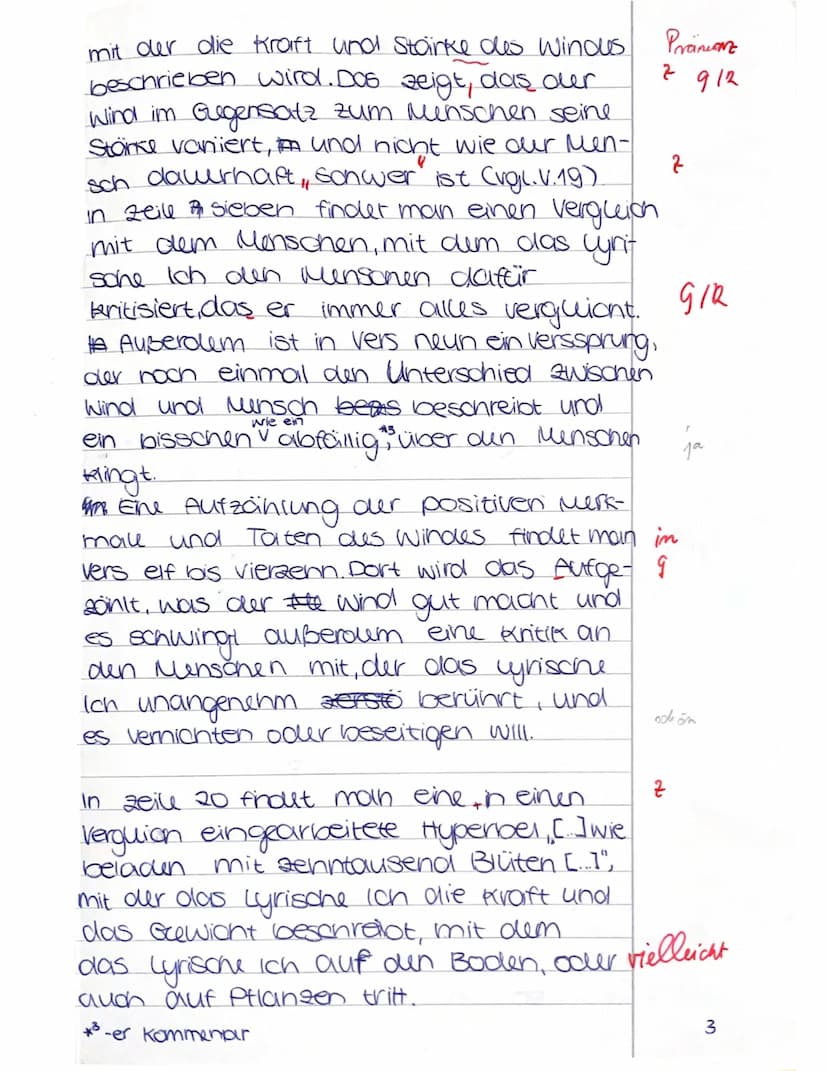 mit der die Kraft und Stärke des Windes
beschrieben wird. Das zeigt, das der
Wind im Gegensatz zum Menschen seine
Stärke variiert, und nicht wie der Men-
sch dauerhaft „schwer“ ist (vgl. V. 19)
in Zeile sieben findet man einen Vergleich
mit dem Menschen, mit dem das Lyri-
sche Ich den Menschen dafür
kritisiert, das er immer alles vergleicht.
Außerdem ist in Vers neun ein Verssprung,
der noch einmal den Unterschied zwischen
Wind und Mensch beschreibt und
wie ein
ein bisschen abfällig *³ über den Menschen
klingt.
Eine Aufzählung der positiven Merk-
male und Taten des Windes findet man im
Vers elf bis vierzehn. Dort wird das Aufge-
zählt, was der Wind gut macht und
es schwingt außerdem eine Kritik an
den Menschen mit, der das lyrische
Ich unangenehm berührt, und
es vernichten oder beseitigen will.
In Zeile 20 findet man eine, in einen
Vergleich eingearbeitete Hyperbel „[...] wie
beladen mit zehntausend Blüten [...]",
mit der das Lyrische Ich die Kraft und
das Gewicht beschreibt, mit dem
das Lyrische Ich auf den Boden, oder vielleicht
auch auf Pflanzen tritt.
*³ -er Kommentar
Z G/R
Z
G/R
ja
G
schön
Z
3